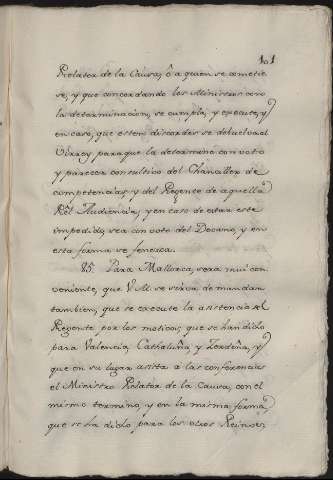 101
Relator de la Causa, ô a quien se cometie
se, y que concordando los Ministros con
la determinacion, se cumpla, y execute, y
en caso, que esten discordes se debuelva al
Virrey para que la determine con voto
y parecer consultivo del Chanciller de
competencias, y del Regente de aquella
Rl. Audiencia, y en caso de estar este
impedido, sea con voto del Decano, y en
esta forma se fenesca.
85. Para Mallorca, será mui con
veniente, que V.M. se sirva de mandar
tambien, que se execute la asistencia del
Regente por los motivos, que se han dicho
para Valencia, Cathaluña, y Zerdeña, y
que en su lugar asista a las conferencias
el Ministro Relator de la Causa, con el
mismo termino, y en la misma forma,
que se ha dicho para los otros Reinos,